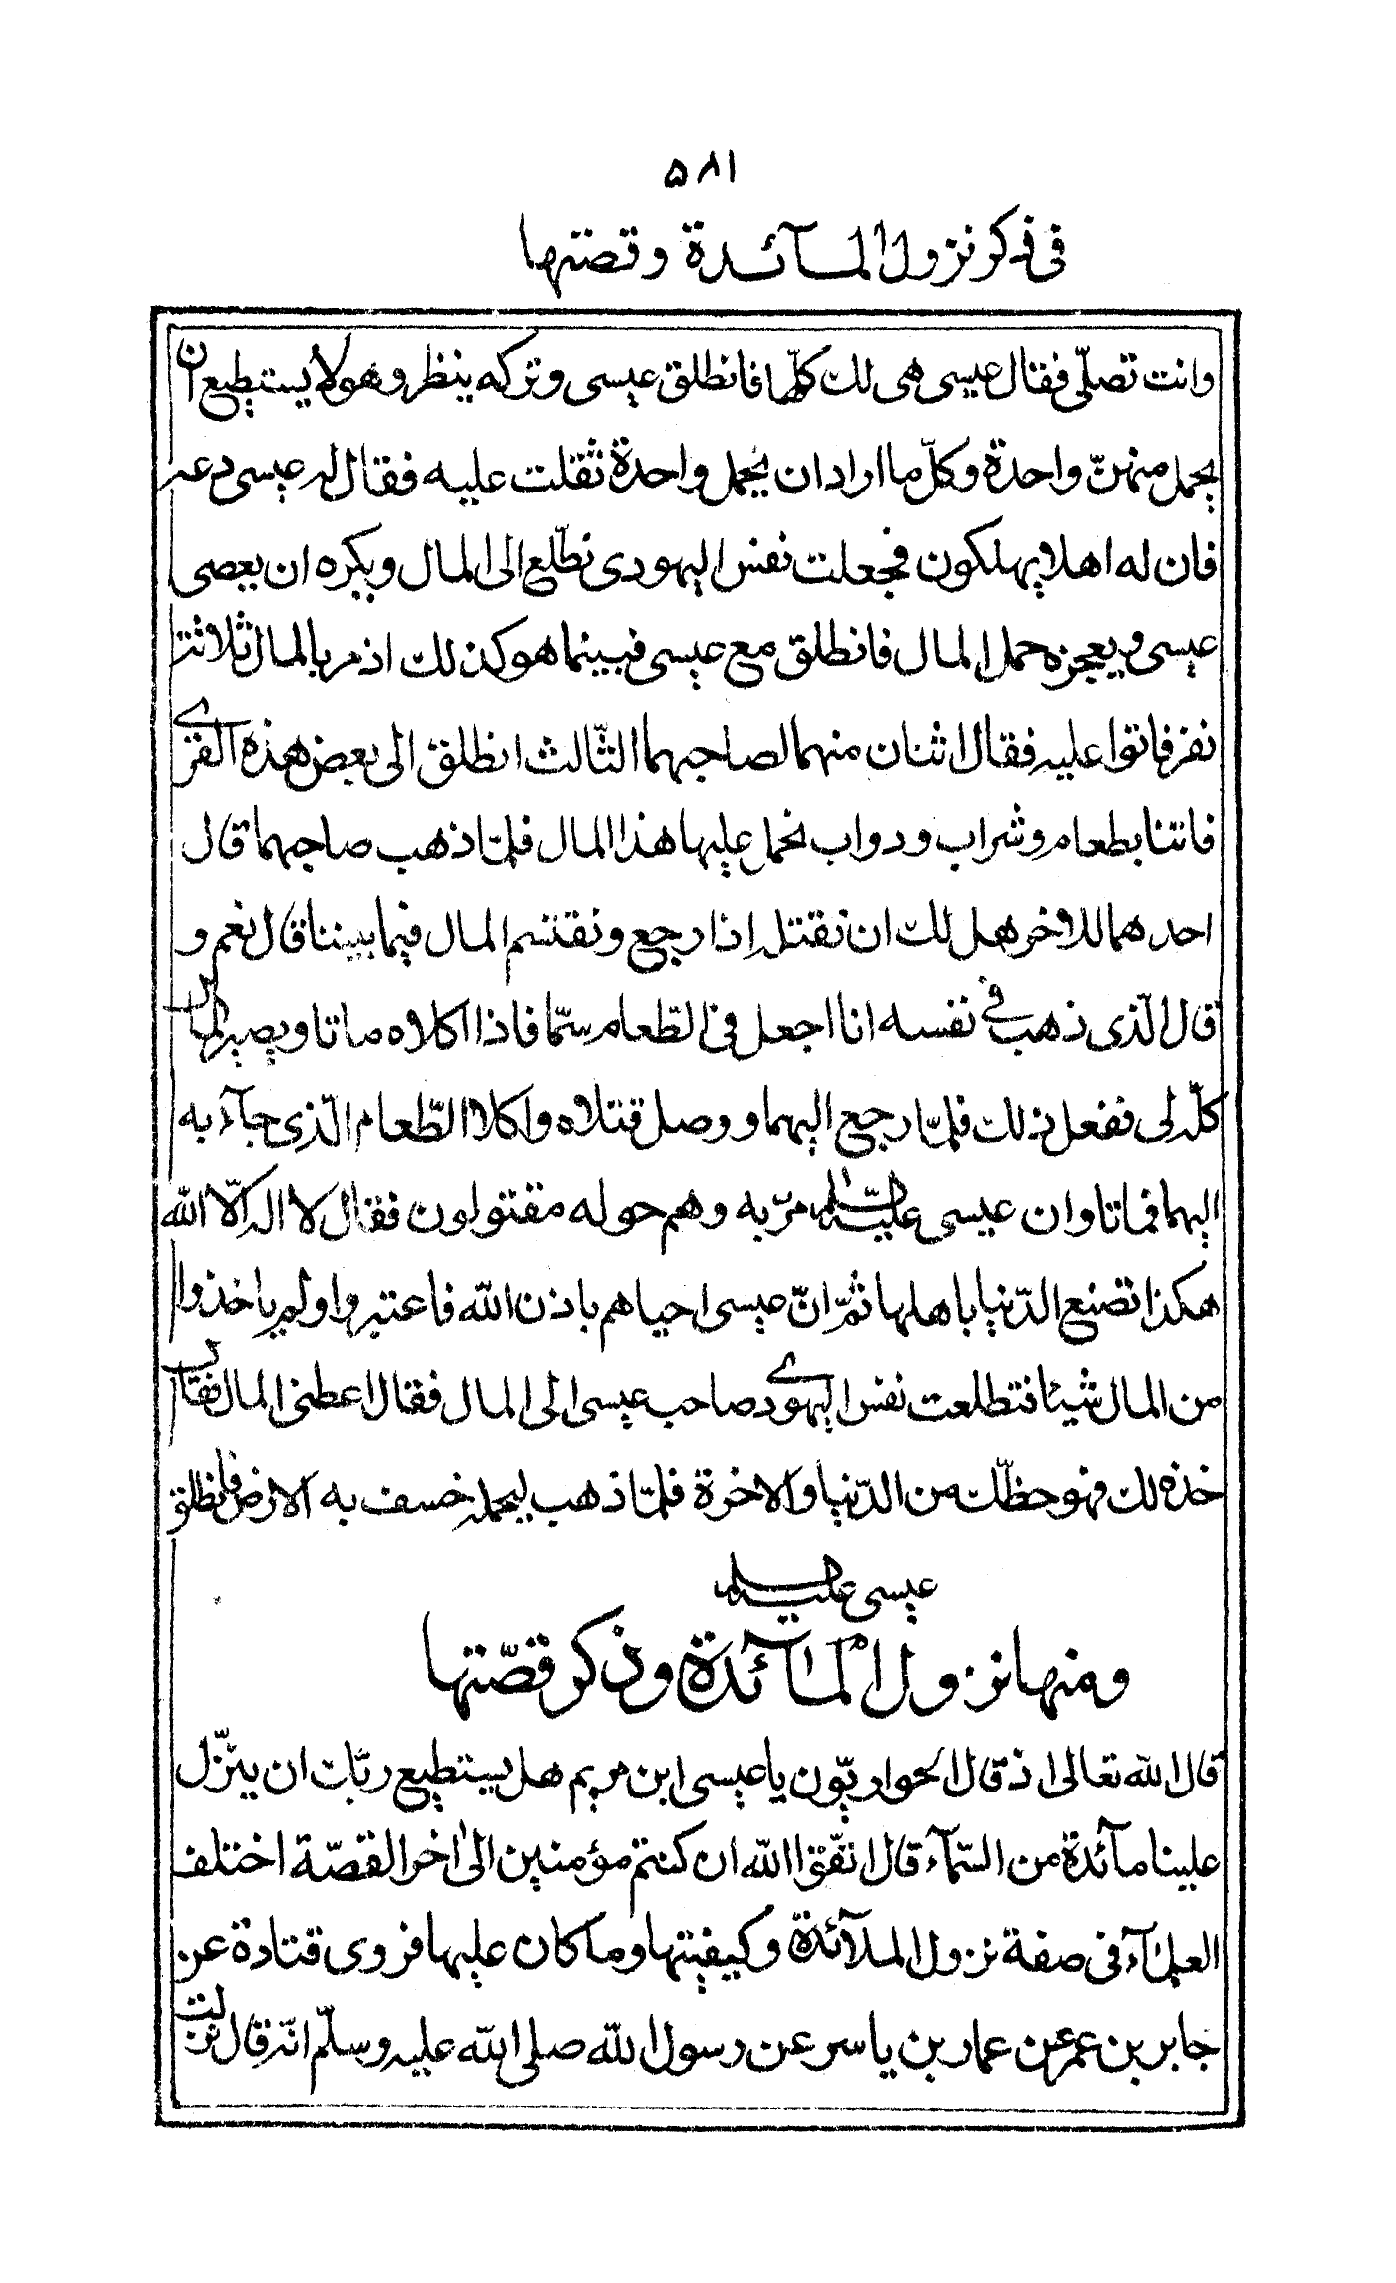 ۵۸۱
فی ذکر نزول المـآئـدة وقصتها
وانت تصلّی فقال عیسی هی لك کلّها فانطلق عیسی وترکه ینظر وهو لا یستطیع ان
یحمل منهنّ واحدة وکلّ ما اراد ان یحمل واحدة ثقلت علیه فقال له عیسی دعه
فان له اهلا یهلکون فجعلت نفس الیهودی تطّلع الی المال ویکره ان یعصی
عیسی ویعجزه حمل المال فانطلق مع عیسی فبینما هو کذلك اذ مر بالمال ثلاثة
نفر فاتوا علیه فقال اثنان منهما لصاحبهما الثّالث انطلق الی بعض هذه القری
فاتنا بطعام وشراب ودواب نحمل علیها هذا المال فلمّا ذهب صاحبهما قال
احدهما للاخر هل لك ان نقتله اذا رجع ونقتسم المال فیما بیننا قال نعم و
قال الّذی ذهب فی نفسه انا اجعل فی الطّعام سمّا فاذا اکلاه ماتا ویصیر المال
کلّه لی ففعل ذلك فلمّا رجع الیهما ووصل قتلاه واکلا الطّعام الّذی جآء به
الیهما فماتا وان عیسی علیه السّلام مرّ به وهم حوله مقتولون فقال لا اله الّا الله
هکذا تصنع الدّنیا باهلها ثمّ انّ عیسی احیاهم باذن الله فاعتبروا ولم یاخذوا
من المال شیئا فتطلعت نفس الیهودی صاحب عیسی الی المال فقال اعطنی المال فقال
خذه لك فهو حظّك من الدّنیا والاخرة فلمّا ذهب لیحمله خسف به الارض فانطلق
عیسی علیه السلام
ومنها نزول المآئدة وذکر قصّتها
قال الله تعالی اذ قال الحواریّون یا عیسی ابن مریم هل یستطیع ربّك ان ینزّل
علینا مآئدة من السّمآء قال اتّقوا الله ان کنتم مؤمنین الیٰ اٰخر القصّة اختلف
العلمآء فی صفة نزول المآئدة وکیفیتها وما کان علیها فروی قتادة عن
جابر بن عمر عن عمار بن یاسر عن رسول الله صلی الله علیه وسلّم انّه قال نزلت